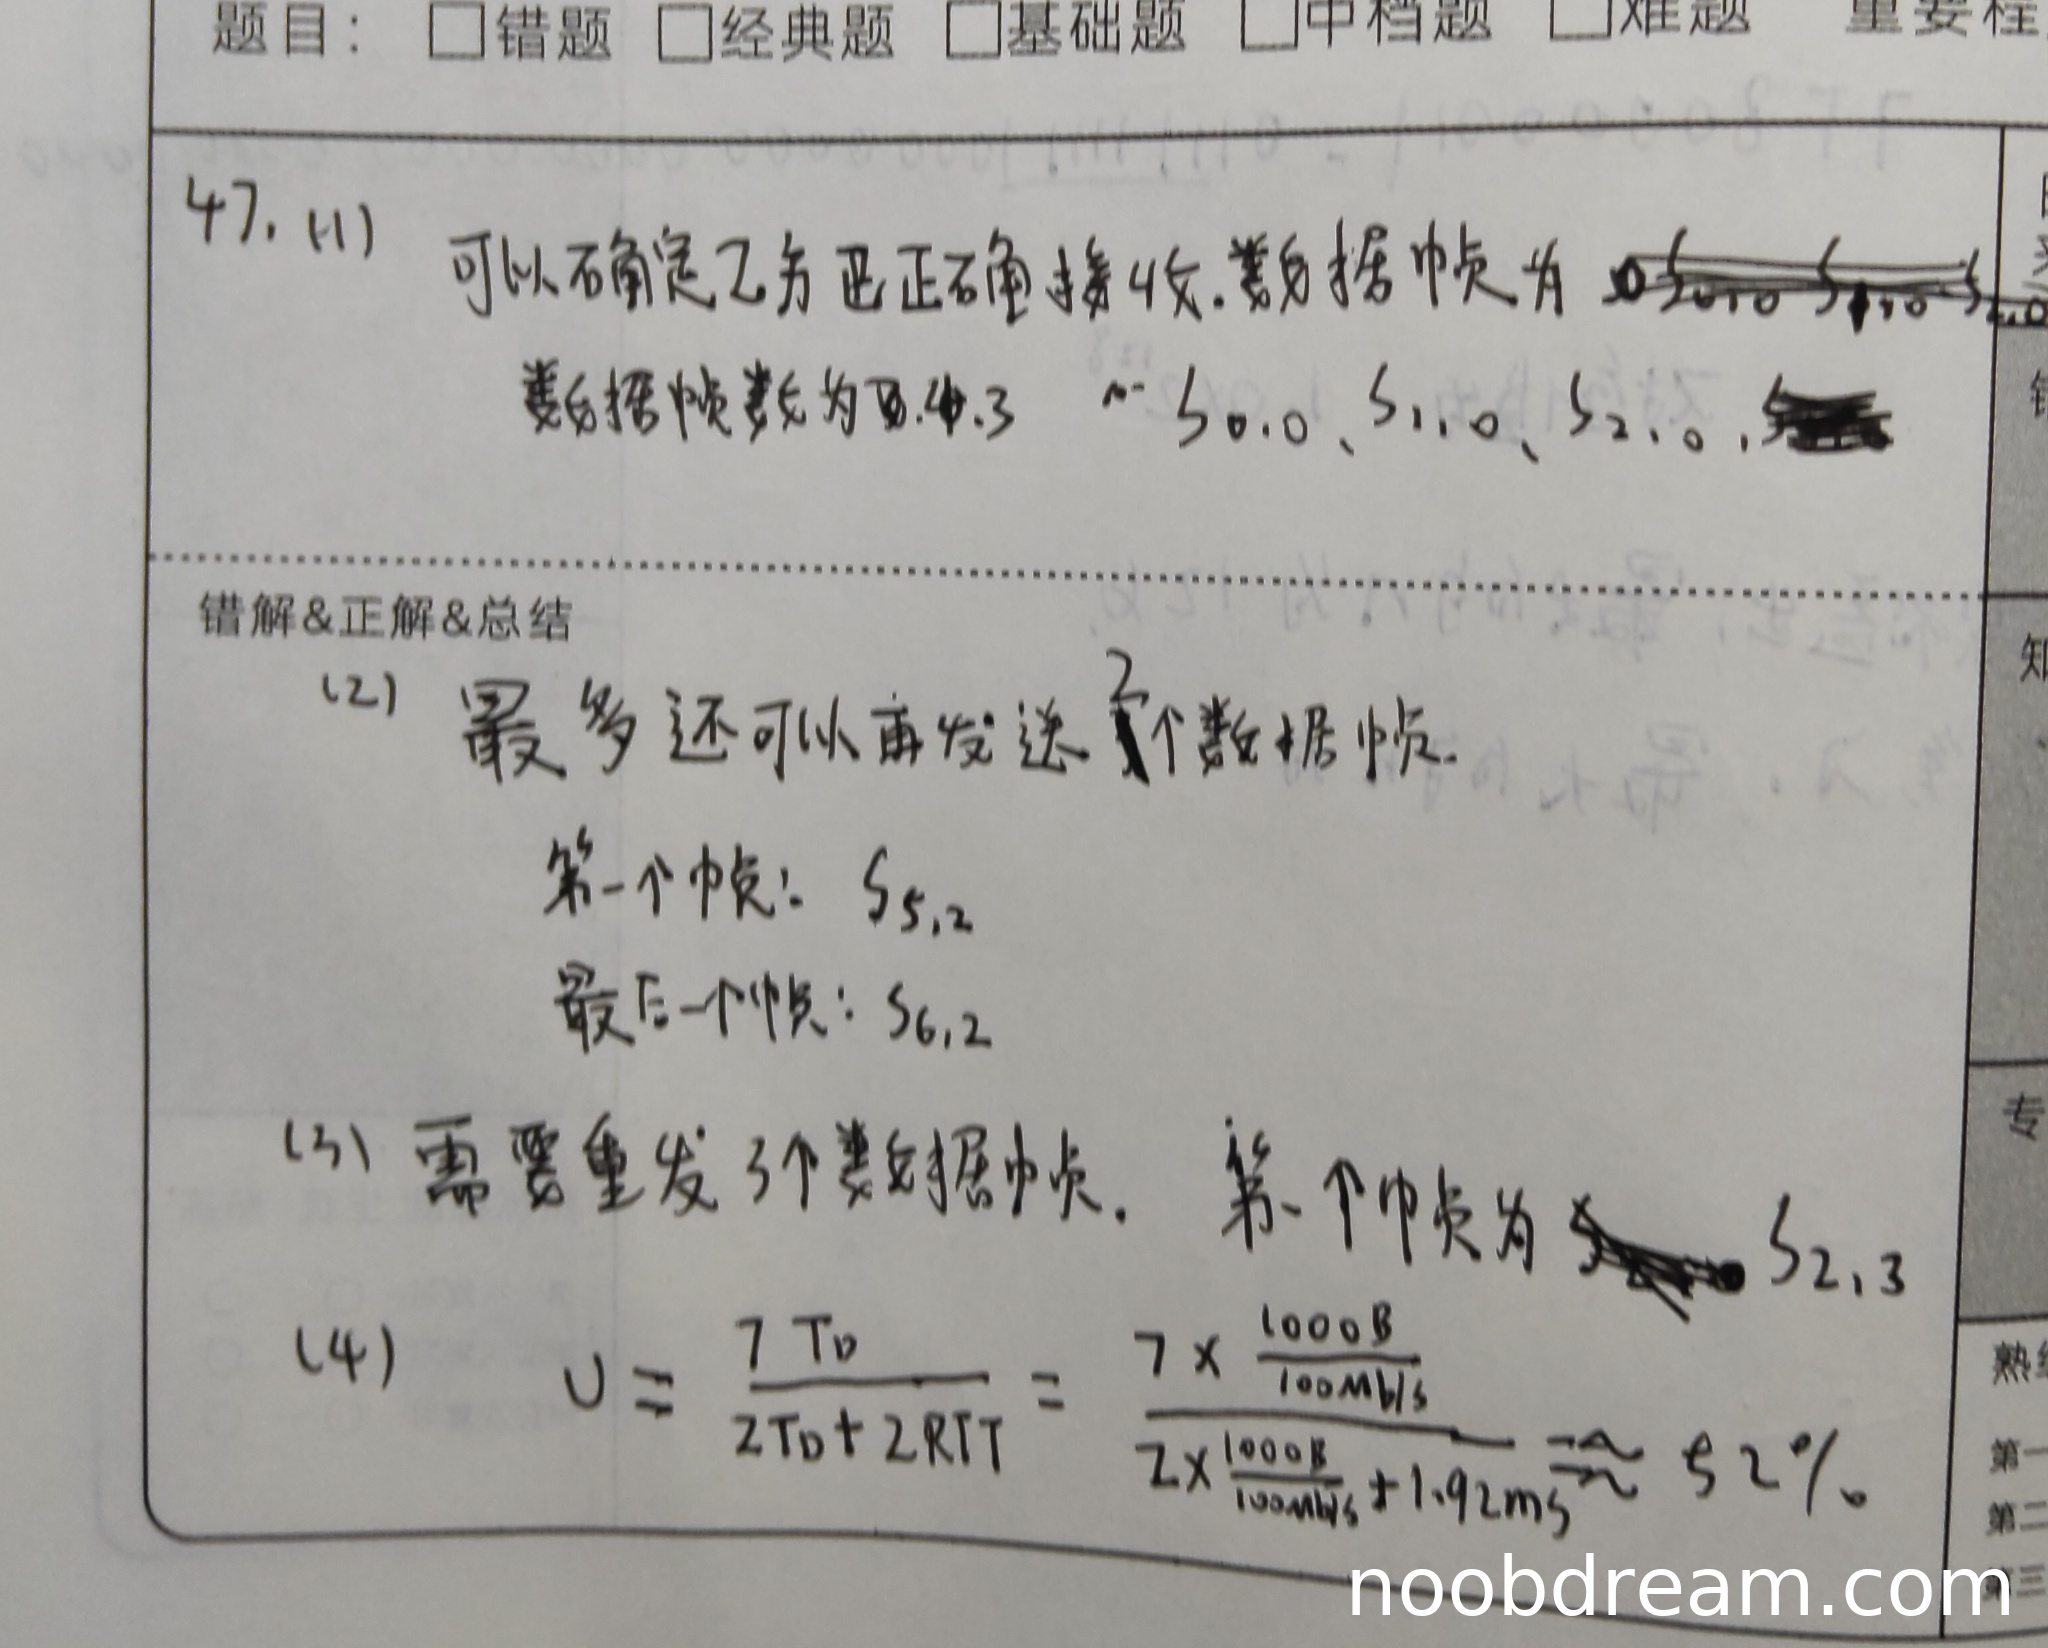 题目： □错题 □经典题 □基础题 □中档题 □难题 重要程
47. (1) 可以确定乙方已正确接收.数据帧为
数据帧数为 3 S0.0、S1.0、S2.0.
错解&正解&总结
(2) 最多还可以再发送2个数据帧.
第一个帧： S5,2
最后一个帧： S6,2
(3) 需要重发3个数据帧. 第一个帧为 S2,3
(4) U = 7TD / (2TD + 2RTT) = (7 × 1000B/100Mb/s) / (2 × 1000B/100Mb/s + 1.92ms) ≈ 52%.
知
专
熟
第一
第二
第三
noobdream.com